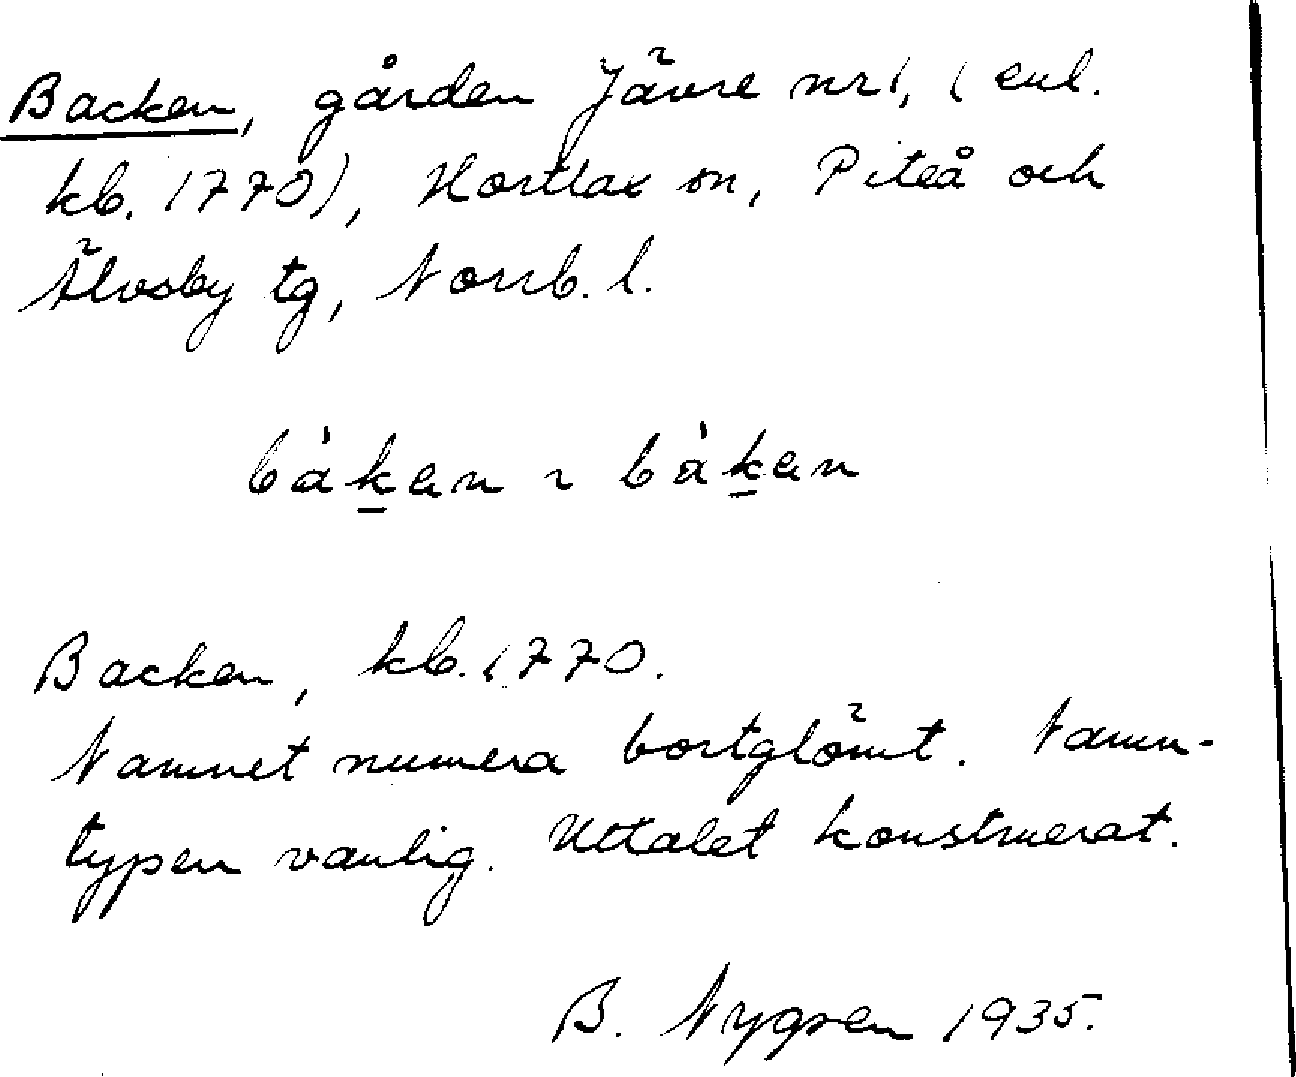 Backen, gården Jävre nr 1, (enl.
kb. 1770), Hortlax sn, Piteå och
Älvsby tg, Norrb. l.
bàken ~ bàkan
Backen, kb. 1770.
Namnet numera bortglömt. Namn-
typen vanlig. Uttalet konstruerat.
B. Nygren 1935.